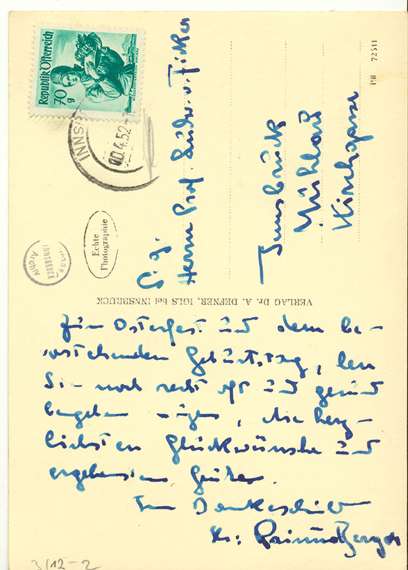 Republik Österreich
70 g
INNS
10.4.52
Echte
Photographie
PH 72511
S. g.
Herrn Prof. Ludw. v. Ficker
Innsbruck
Mühlau
Kirchgasse
VERLAG Dr. A. DEFNER, IGLS bei INNSBRUCK
Zum Osterfest und dem be-
vorstehenden Geburtstag, den
Sie noch recht oft und gesund
begehen mögen, die herz-
lichsten Glückwünsche und
ergebensten Grüße.
Ihr
3/12-2